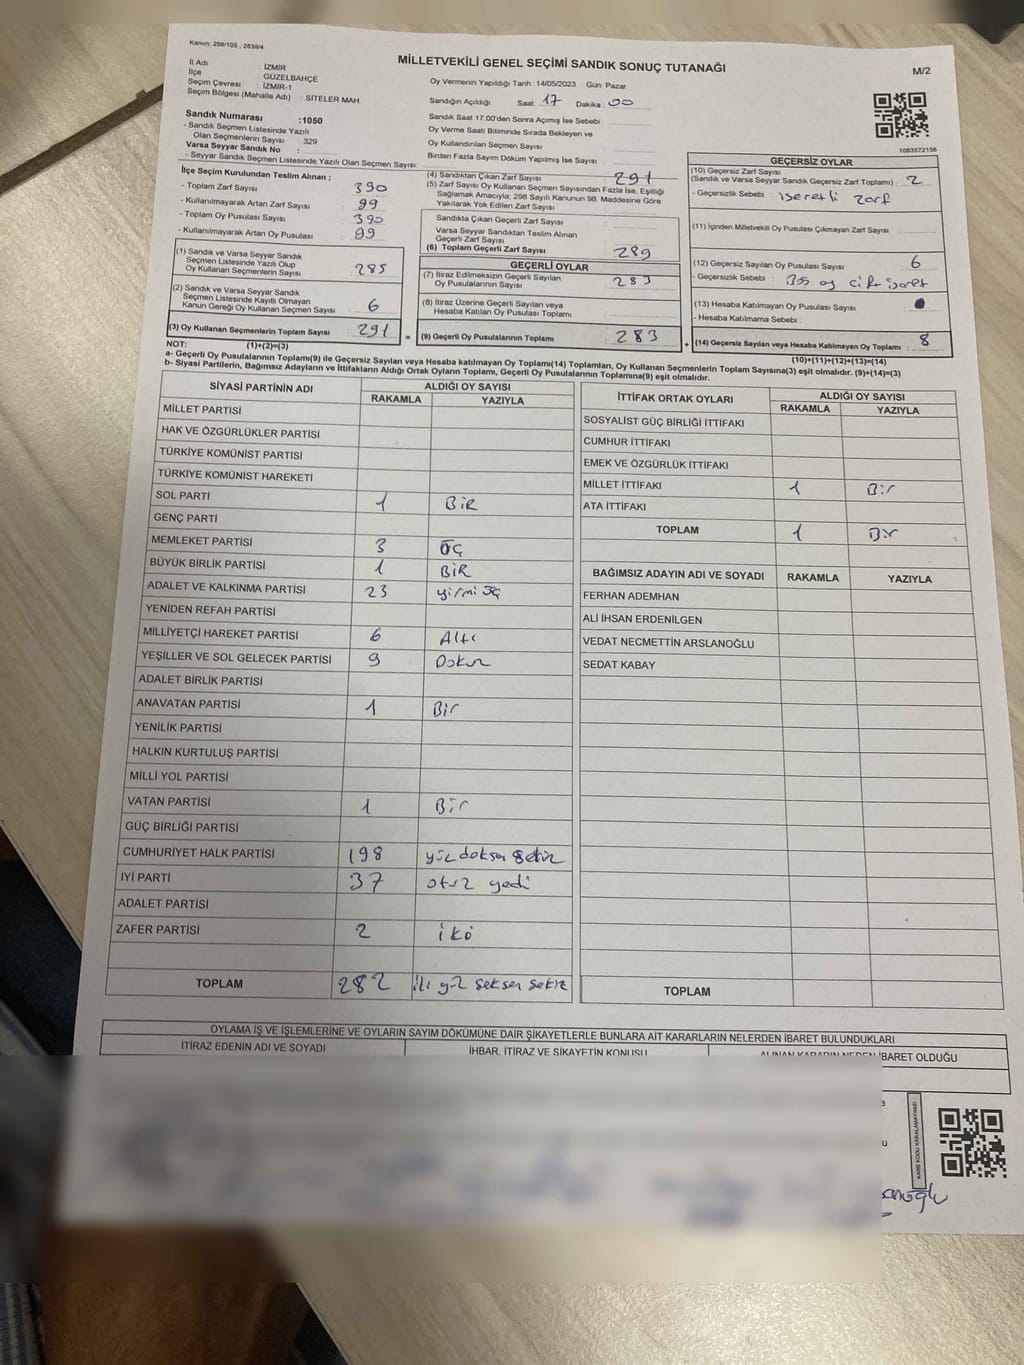 Kanun; 298/105 , 2839/4
MİLLETVEKİLİ GENEL SEÇİMİ SANDIK SONUÇ TUTANAĞI
M/2
İl Adı : İZMİR
İlçe : GÜZELBAHÇE
Seçim Çevresi : İZMİR-1
Seçim Bölgesi (Mahalle Adı) : SİTELER MAH.
Sandık Numarası :1050
- Sandık Seçmen Listesinde Yazılı
Olan Seçmenlerin Sayısı : 329
Varsa Seyyar Sandık No :
- Seyyar Sandık Seçmen Listesinde Yazılı Olan Seçmen Sayısı:
Oy Vermenin Yapıldığı Tarih :14/05/2023 Gün: Pazar
Sandığın Açıldığı Saat: 17 Dakika: 00
Sandık Saat 17.00'den Sonra Açımış İse Sebebi :
Oy Verme Saati Bitiminde Sırada Bekleyen ve
Oy Kullandırılan Seçmen Sayısı :
Birden Fazla Sayım Döküm Yapılmış İse Sayısı :
1083572156
İlçe Seçim Kurulundan Teslim Alınan ;
- Toplam Zarf Sayısı : 390
- Kullanılmayarak Artan Zarf Sayısı : 99
- Toplam Oy Pusulası Sayısı : 390
- Kullanılmayarak Artan Oy Pusulası : 99
(1) Sandık ve Varsa Seyyar Sandık
Seçmen Listesinde Yazılı Olup
Oy Kullanan Seçmenlerin Sayısı : 285
(2) Sandık ve Varsa Seyyar Sandık
Seçmen Listesinde Kayıtlı Olmayan
Kanun Gereği Oy Kullanan Seçmen Sayısı : 6
(3) Oy Kullanan Seçmenlerin Toplam Sayısı : 291
(1)+(2)=(3)
(4) Sandıktan Çıkan Zarf Sayısı : 291
(5) Zarf Sayısı Oy Kullanan Seçmen Sayısından Fazla İse, Eşitliği
Sağlamak Amacıyla; 298 Sayılı Kanunun 98. Maddesine Göre
Yakılarak Yok Edilen Zarf Sayısı :
Sandıkta Çıkan Geçerli Zarf Sayısı :
Varsa Seyyar Sandıktan Teslim Alınan
Geçerli Zarf Sayısı :
(6) Toplam Geçerli Zarf Sayısı : 289
GEÇERLİ OYLAR
(7) İtiraz Edilmeksizin Geçerli Sayılan
Oy Pusulalarının Sayısı : 283
(8) İtiraz Üzerine Geçerli Sayılan veya
Hesaba Katılan Oy Pusulası Toplamı :
= (9) Geçerli Oy Pusulalarının Toplamı : 283
GEÇERSİZ OYLAR
(10) Geçersiz Zarf Sayısı
(Sandık ve Varsa Seyyar Sandık Geçersiz Zarf Toplamı) : 2
- Geçersizlik Sebebi : işaretli zarf
(11) İçinden Milletvekili Oy Pusulası Çıkmayan Zarf Sayısı :
(12) Geçersiz Sayılan Oy Pusulası Sayısı : 6
- Geçersizlik Sebebi : oy çift işaret
(13) Hesaba Katılmayan Oy Pusulası Sayısı :
- Hesaba Katılmama Sebebi :
+ (14) Geçersiz Sayılan veya Hesaba Katılmayan Oy Toplamı : 8
(10)+(11)+(12)+(13)=(14)
NOT:
a- Geçerli Oy Pusulalarının Toplamı(9) ile Geçersiz Sayılan veya Hesaba katılmayan Oy Toplamı(14) Toplamları, Oy Kullanan Seçmenlerin Toplam Sayısına(3) eşit olmalıdır. (9)+(14)=(3)
b- Siyasi Partilerin, Bağımsız Adayların ve İttifakların Aldığı Ortak Oyların Toplamı, Geçerli Oy Pusulalarının Toplamına(9) eşit olmalıdır.
SİYASİ PARTİNİN ADI ALDIĞI OY SAYISI
RAKAMLA YAZIYLA
MİLLET PARTİSİ
HAK VE ÖZGÜRLÜKLER PARTİSİ
TÜRKİYE KOMÜNİST PARTİSİ
TÜRKİYE KOMÜNİST HAREKETİ
SOL PARTİ 1 BİR
GENÇ PARTİ
MEMLEKET PARTİSİ 3 ÜÇ
BÜYÜK BİRLİK PARTİSİ 1 BİR
ADALET VE KALKINMA PARTİSİ 23 yirmi üç
YENİDEN REFAH PARTİSİ
MİLLİYETÇİ HAREKET PARTİSİ 6 Altı
YEŞİLLER VE SOL GELECEK PARTİSİ 9 Dokuz
ADALET BİRLİK PARTİSİ
ANAVATAN PARTİSİ 1 Bir
YENİLİK PARTİSİ
HALKIN KURTULUŞ PARTİSİ
MİLLİ YOL PARTİSİ
VATAN PARTİSİ 1 Bir
GÜÇ BİRLİĞİ PARTİSİ
CUMHURİYET HALK PARTİSİ 198 yüz doksan sekiz
İYİ PARTİ 37 otuz yedi
ADALET PARTİSİ
ZAFER PARTİSİ 2 iki
TOPLAM 282 iki yüz seksen sekiz
İTTİFAK ORTAK OYLARI ALDIĞI OY SAYISI
RAKAMLA YAZIYLA
SOSYALİST GÜÇ BİRLİĞİ İTTİFAKI
CUMHUR İTTİFAKI
EMEK VE ÖZGÜRLÜK İTTİFAKI
MİLLET İTTİFAKI 1 Bir
ATA İTTİFAKI
TOPLAM 1 Bir
BAĞIMSIZ ADAYIN ADI VE SOYADI RAKAMLA YAZIYLA
FERHAN ADEMHAN
ALİ İHSAN ERDENİLGEN
VEDAT NECMETTİN ARSLANOĞLU
SEDAT KABAY
TOPLAM
OYLAMA İŞ VE İŞLEMLERİNE VE OYLARIN SAYIM DÖKÜMÜNE DAİR ŞİKAYETLERLE BUNLARA AİT KARARLARIN NELERDEN İBARET BULUNDUKLARI
İTİRAZ EDENİN ADI VE SOYADI İHBAR, İTİRAZ VE ŞİKAYETİN KONUSU ALINAN KARARIN NEDEN İBARET OLDUĞU
KARE KODU KARALAMAYINIZ!